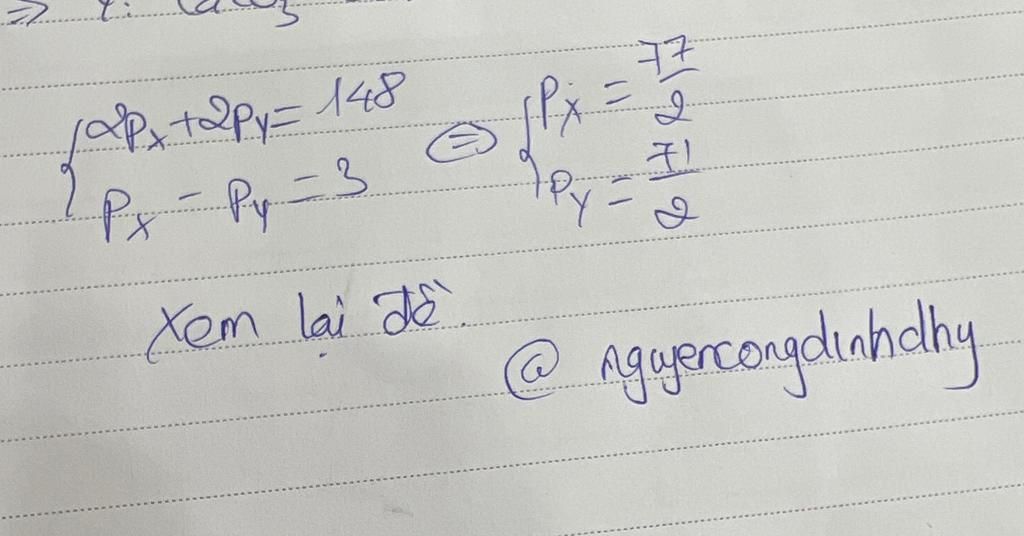 ⇒ Y:
2Px + 2Py = 148 ⇔ Px = 77/2
Px - Py = 3 Py = 71/2
Xem lại đề.
@ nguyencongdinhdhy